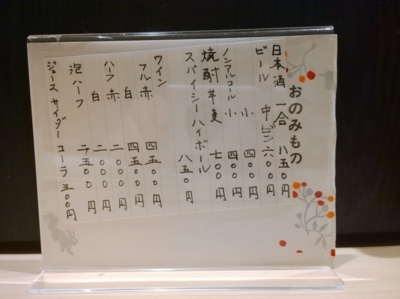 おのみもの
日本酒 一合 八五〇円
ビール 中ビン 六〇〇円
小 四〇〇円
ノンアルコール 小 四〇〇円
焼酎 芋 麦 七〇〇円
スパイシーハイボール 八五〇円
ワイン
フル 赤 四五〇〇円
白 四五〇〇円
ハーフ 赤 二〇〇〇円
白 二〇〇〇円
泡 ハーフ 二五〇〇円
ジュース サイダー コーラ 三〇〇円